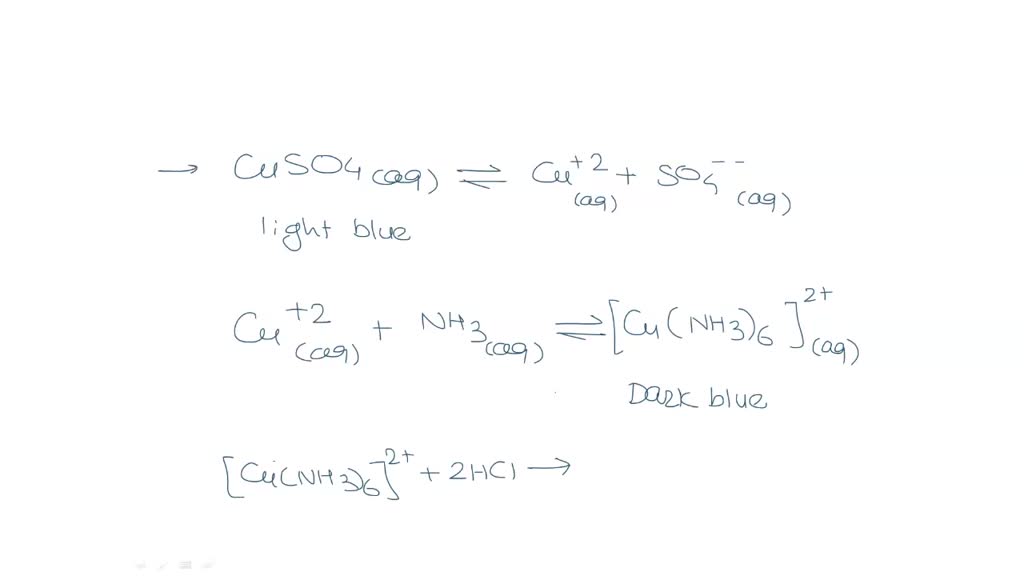 → CuSO4(aq) ⇌ Cu⁺²(aq) + SO4⁻⁻(aq)
light blue
Cu⁺²(aq) + NH3(aq) ⇌ [Cu(NH3)6]²⁺(aq)
Dark blue
[Cu(NH3)6]²⁺ + 2HCl →